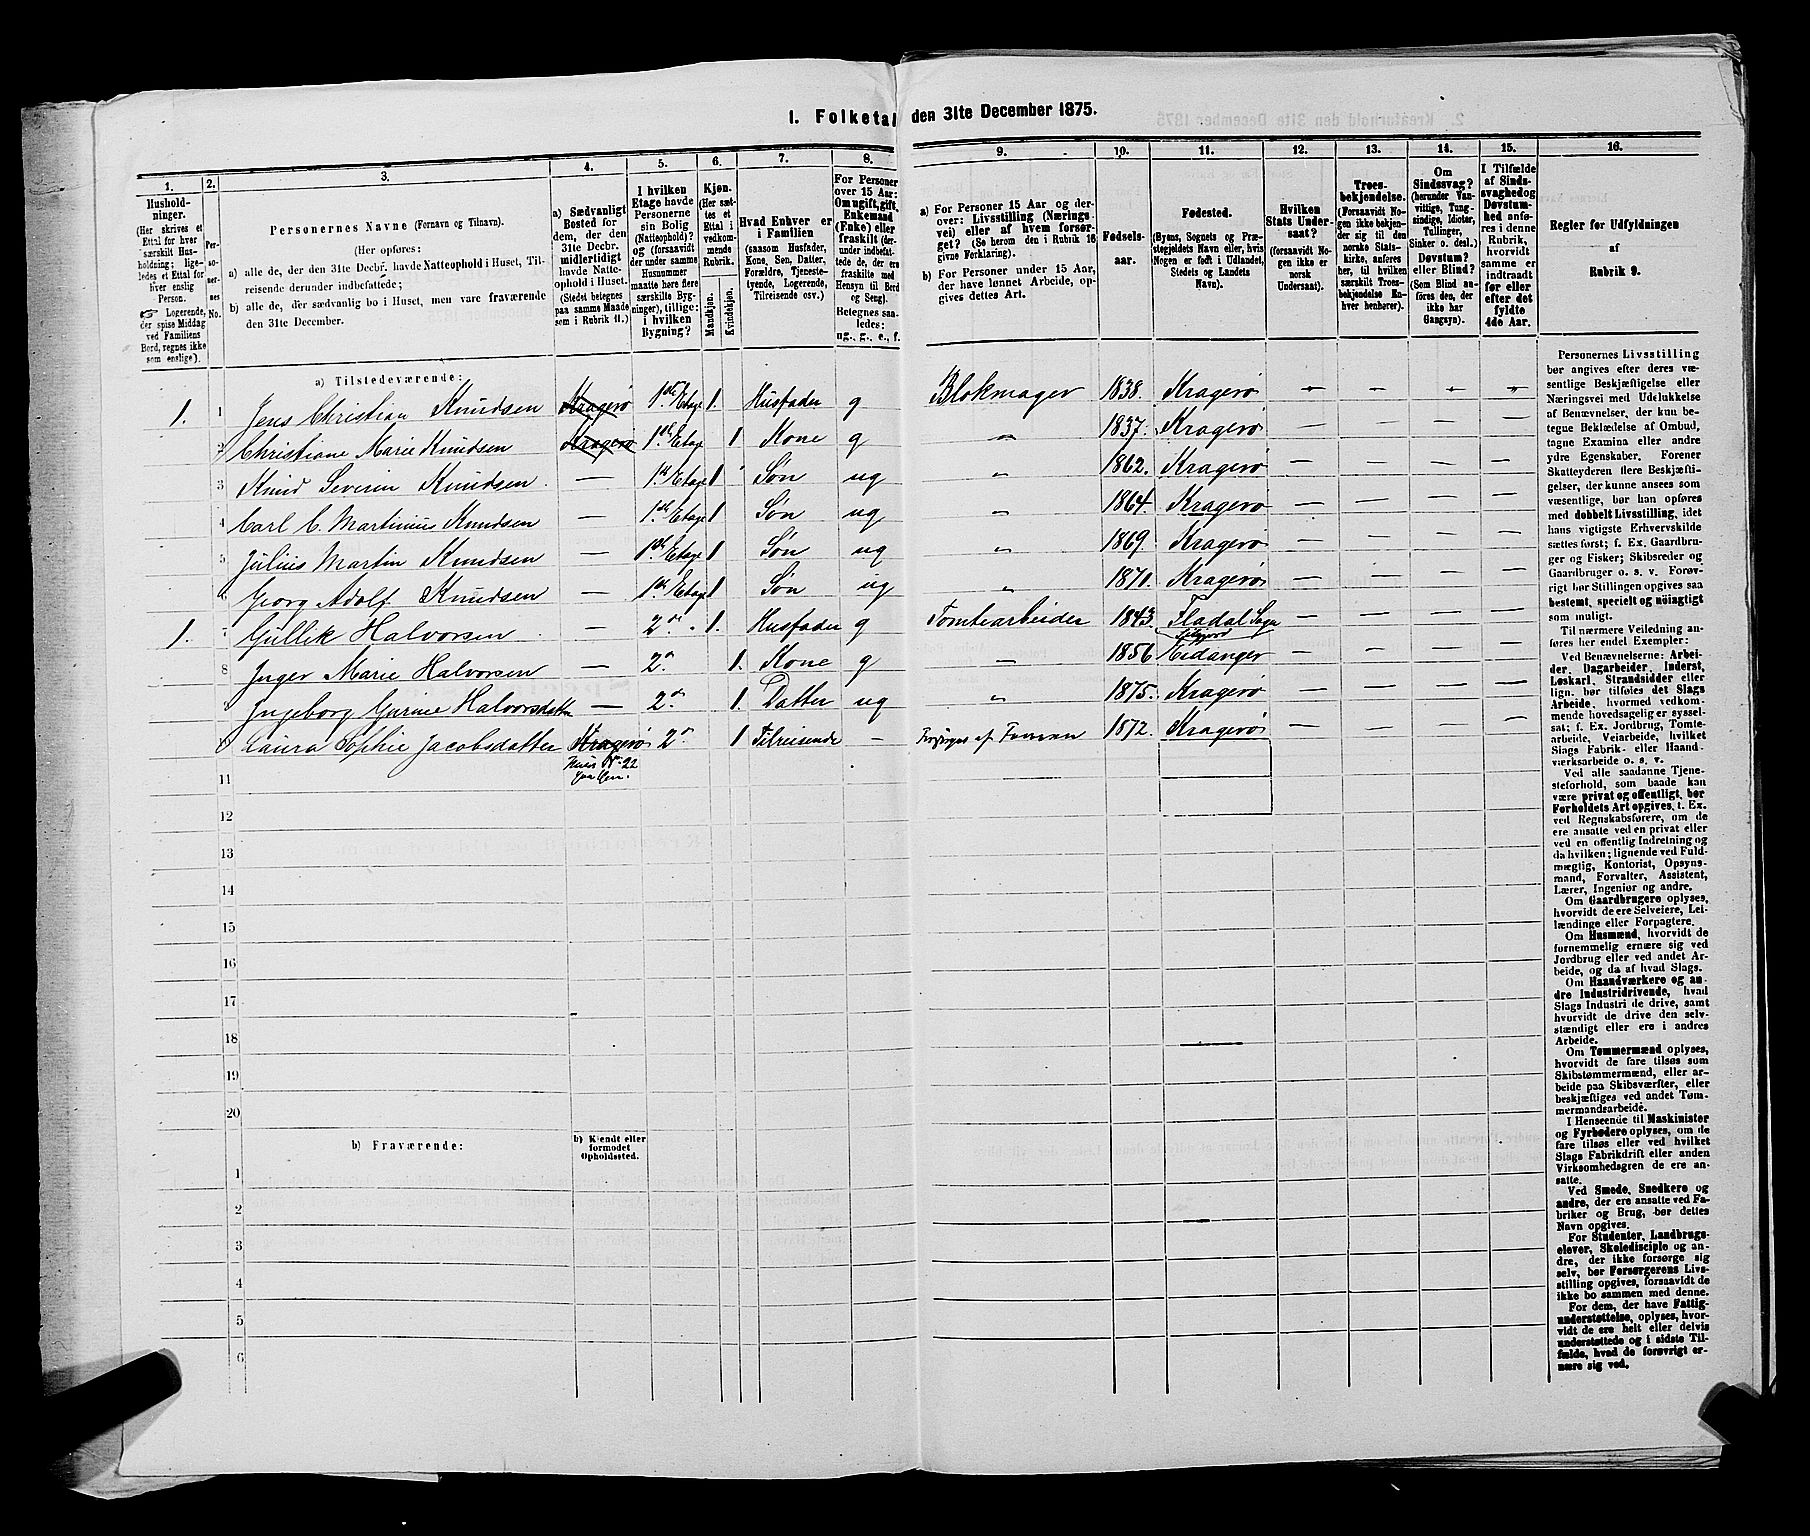 I. Folketal den 31te December 1875.
1. 2. 3. 4. 5. 6. 7. 8. 9. 10. 11. 12. 13. 14. 15. 16.
Husholdninger.
(Her skrives et
Ettal for hver
særskilt Husholdning;
ligeledes et Ettal for
hver enslig
Person.
☞ Logerende,
der spise Middag
ved Familiens
Bord, regnes ikke
som enslige).
Personernes No.
Personernes Navne (Fornavn og Tilnavn).
(Her opføres:
a) alle de, der den 31te Decbr. havde Natteophold i Huset, Tilreisende derunder indbefattede;
b) alle de, der sædvanlig bo i Huset, men vare fraværende
den 31te December.
a) Sædvanligt
Bosted for
dem, der den
31te Decbr.
midlertidigt
havde Natteophold i Huset.
(Stedet betegnes
paa samme Maade
som i Rubrik 11.)
I hvilken
Etage havde
Personerne
sin Bolig
(Natteophold)?
og (forsaavidt
der under samme
Husnummer
maatte høre flere
særskilte Bygninger), tillige:
i hvilken
Bygning?
Kjøn.
(Her sættes et
Ettal i
vedkommende
Rubrik.
Mandkjøn.
Kvindekjøn.
Hvad Enhver er
i Familien
(saasom Husfader,
Kone, Søn, Datter,
Forældre, Tjenestetyende, Logerende,
Tilreisende osv.)
For Personer
over 15 Aar:
Om ugift, gift,
Enkemand
(Enke) eller
fraskilt (derunder indbefattede de, der ere
fraskilte med
Hensyn til Bord
og Seng).
Betegnes saaledes:
ug., g., e., f.
a) For Personer 15 Aar og derover: Livsstilling (Næringsvei) eller af hvem forsørget? (Se herom den i Rubrik 16
givne Forklaring).
b) For Personer under 15 Aar,
der have lønnet Arbeide, opgives dettes Art.
Fødselsaar.
Fødested.
(Byens, Sognets og Præstegjeldets Navn eller, hvis
Nogen er født i Udlandet,
Stedets og Landets
Navn).
Hvilken
Stats Undersaat?
(forsaavidt Nogen ikke er
norsk
Undersaat).
Troesbekjendelse.
(Forsaavidt Nogen ikke bekjender sig til den
norske Statskirke, anføres
her, til hvilken
særskilt Troesbekjendelse Enhver henhører).
Om
Sindssvag?
(herunder Vanvittige, Tungsindige, Idioter,
Tullinger,
Sinker o. desl.)
Døvstum?
eller Blind?
(Som Blind anføres den, der
ikke har
Gangsyn).
I Tilfælde
af Sindssvaghed og
Døvstumhed anføres i denne
Rubrik,
hvorvidt
samme er
indtraadt
før eller
efter det
fyldte
4de Aar.
Regler for Udfyldningen
af
Rubrik 9.
a) Tilstedeværende:
1. 1 Jens Christian Knudsen Kragerø 1ste Etage 1. Husfader g Blokmager 1838. Kragerø - - - -
2 Christiane Marie Knudsen Kragerø 1ste Etage 1 Kone g " 1837. Kragerø — — — —
3 Knud Severin Knudsen. — 1ste Etage 1 Søn ug " 1862. Kragerø — — — —
4 Carl C. Martinius Knudsen — 1ste Etage 1 Søn ug " 1864. Kragerø — — — —
5 Julius Martin Knudsen — 1ste Etage 1 Søn ug " 1869. Kragerø — — — —
6 Georg Adolf Knudsen — 1ste Etage 1 Søn ug " 1870. Kragerø — — — —
1. 7 Gullik Halvorsen — 2den 1. Husfader g Tomtearbeider 1843. Fladal Sogn
8 Inger Marie Halvorsen — 2den 1. Kone g " 1856 Eidanger — — — —
9 Ingeborg Gurine Halvorsdatter — 2den 1. Datter ug " 1875. Kragerø — — — —
Laura Sophie Jacobsdatter Kragerø 2den 1 Tilreisende — Forsørges af 1872. Kragerø — — — —
Huus No 22
11
12
13
14
15
16
17
18
19
20
b) Fraværende:
b) Kjendt eller
formodet
Opholdssted.
1
2
3
4
5
6
Personernes Livsstilling
bør angives efter deres væsentlige Beskjæftigelse eller
Næringsvei med Udelukkelse
af Benævnelser, der kun betegne Beklædelse af Ombud,
tagne Examina eller andre
ydre Egenskaber. Forener
Skatteyderen flere Beskjæftigelser, der kunne ansees som
væsentlige, bør han opføres
med dobbelt Livsstilling, idet
hans vigtigste Erhvervskilde
sættes først; f. Ex. Gaardbruger og Fisker; Skibsreder og
Gaardbruger o. s. v. Forøvrigt bør Stillingen opgives saa
bestemt, specielt og nöiagtigt
som muligt.
Til nærmere Veiledning anføres her endel Exempler:
Ved Benævnelserne: Arbeider, Dagarbeider, Inderst,
Løskarl, Strandsidder eller
lign. bør tilføies det Slags
Arbeide, hvormed vedkommende hovedsagelig er sysselsat; f. Ex. Jordbrug, Tomtearbeide, Veiarbeide, hvilket
Slags Fabrik- eller Haandværksarbeide o. s. v.
Ved alle saadanne Tjenesteforhold, som baade kan
være privat og offentligt, bør
Forholdets Art opgives, t. Ex.
ved Regnskabsførere, om de
ere ansatte ved en privat eller
ved en offentlig Indretning og
da hvilken; lignende ved Fuldmægtig, Kontorist, Opsynsmand, Forvalter, Assistent,
Lærer, Ingeniør og andre.
Om Gaardbrugere oplyses,
hvorvidt de ere Selveiere, Leilændinge eller Forpagtere.
Om Husmænd, hvorvidt de
fornemmelig ernære sig ved
Jordbrug eller ved andet Arbeide, og da af hvad Slags.
Om Haandværkere og andre Industridrivende, hvad
Slags Industri de drive, samt
hvorvidt de drive den selvstændigt eller ere i andres
Arbeide.
Om Tømmermænd oplyses,
hvorvidt de fare tilsøs som
Skibstømmermænd, eller arbeide paa Skibsværfter, eller
beskjæftiges ved andet Tømmermandsarbeide.
I Henseende til Maskinister
og Fyrbødere oplyses, om de
fare tilsøs eller ved hvilket
Slags Fabrikdrift eller anden
Virksomhedsgren de ere ansatte.
Ved Smede, Snedkere og
andre, der ere ansatte ved Fabriker og Brug, bør dettes
Navn opgives.
For Studenter, Landbrugselever, Skoledisciple og andre, der ikke forsørge sig
selv, bør Forsørgerens Livsstilling opgives, forsaavidt de
ikke bo sammen med denne.
For dem, der have Fattigunderstøttelse, oplyses, hvorvidt de ere helt eller delvis
understøttede og i sidste Tilfælde, hvad de forøvrigt ernære sig ved.